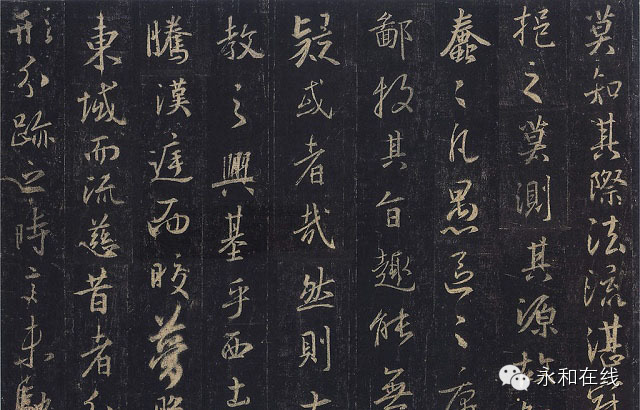 莫知其際法流湛寂
挹之莫測其源故
蠢々凡愚區々庸
鄙投其旨趣能無
疑或者哉然則大
教之興基乎西土
騰漢庭而皎夢照
東域而流慈昔者分
形分跡之時言未馳
永和在线